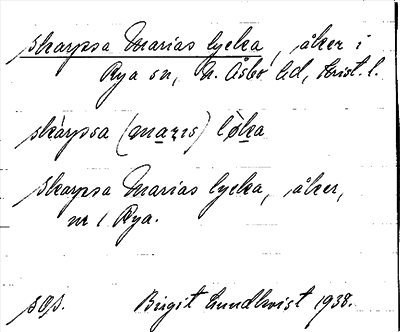 skarpsa Marias lycka, åker i
Rya sn, N. Åsbo hd, Krist. l.
skàrpsa (maris) løka
skarpsa Marias lycka, åker,
nr 1 Rya.
sop. Birgit Lundkvist 1938.